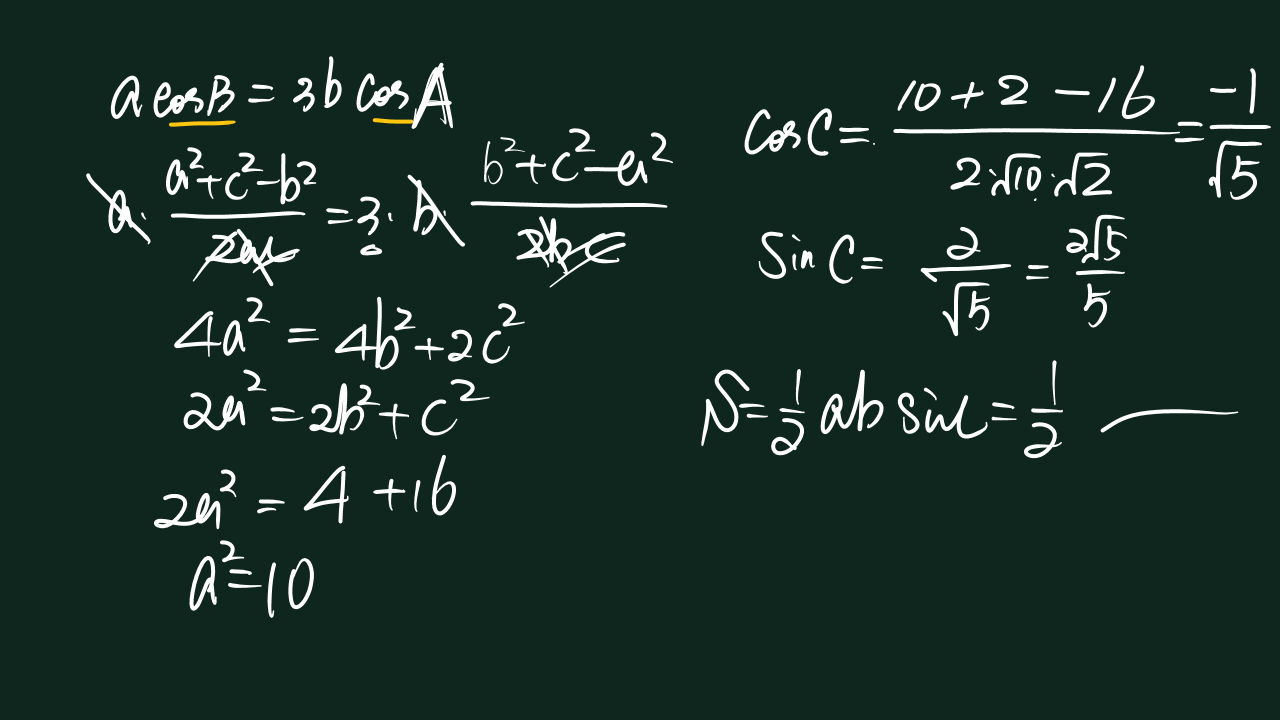 a cosB = 3b cosA
a · (a²+c²-b²)/(2ac) = 3 · b · (b²+c²-a²)/(2bc)
4a² = 4b²+2c²
2a² = 2b²+c²
2a² = 4 +16
a² = 10
cosC = (10+2-16)/(2·√10·√2) = -1/√5
Sin C = 2/√5 = 2√5/5
S = 1/2 ab sinC = 1/2